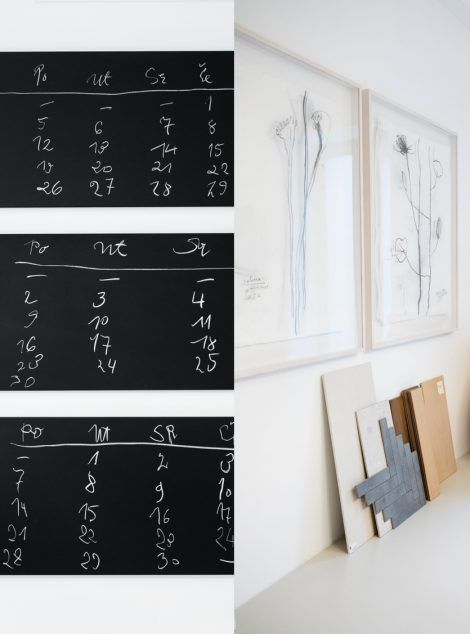 Po Ut St Če
— — — 1
5 6 7 8
12 13 14 15
19 20 21 22
26 27 28 29
Po Ut St
— — —
2 3 4
9 10 11
16 17 18
23 24 25
30
Po Ut SR
— 1 2 3
7 8 9 10
14 15 16 17
21 22 23 24
28 29 30